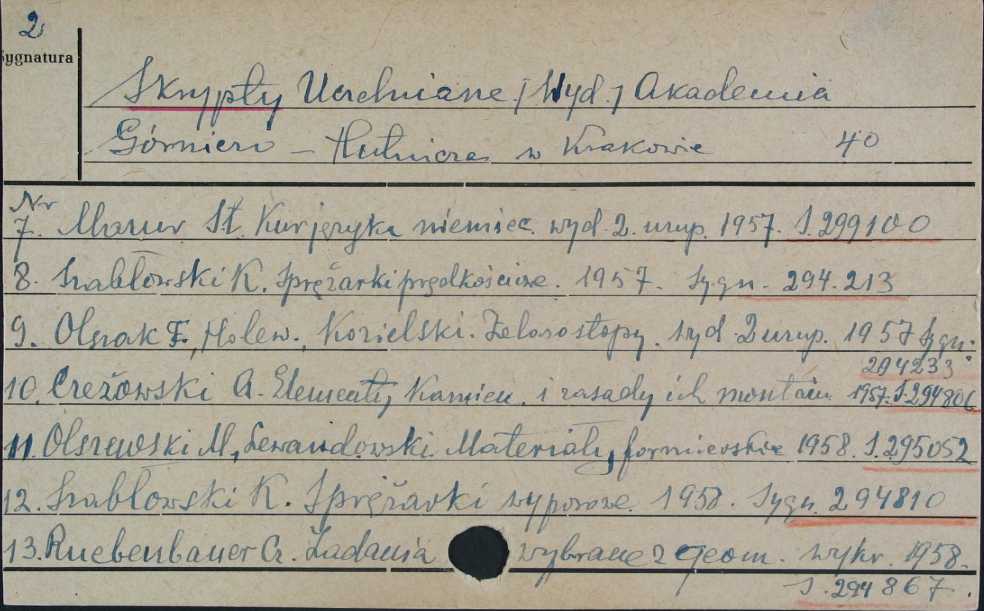 2
Sygnatura
Skrypty Uczelniane [Wyd.] Akademia
Górniczo - Hutnicza w Krakowie 40
Nr
7. Mazur St. Kurs języka niemiec. wyd. 2. uzup. 1957. S. 299100
8. Szabłowski K. Sprężarki prędkościowe. 1957. Sygn. 294.213
9. Olszak F., Holew., Kozielski. Żelazostopy. wyd. 2 uzup. 1957 Sygn.
294233
10. Czeżowski A. Elementy kamien. i zasady ich montażu 1957. S. 294806
11. Olszewski M., Lewandowski. Materiały formierskie 1958. S. 295052
12. Szabłowski K. Sprężarki wyporowe. 1958. Sygn. 294810
13. Ruebenbauer Cz. Zadania wybrane z geom. wykr. 1958.
S. 294867.